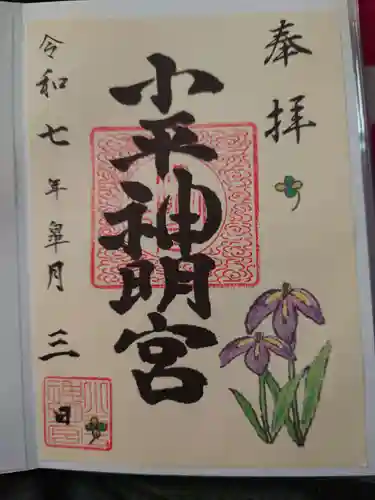 奉拝
小平神明宮
令和七年皐月三
日